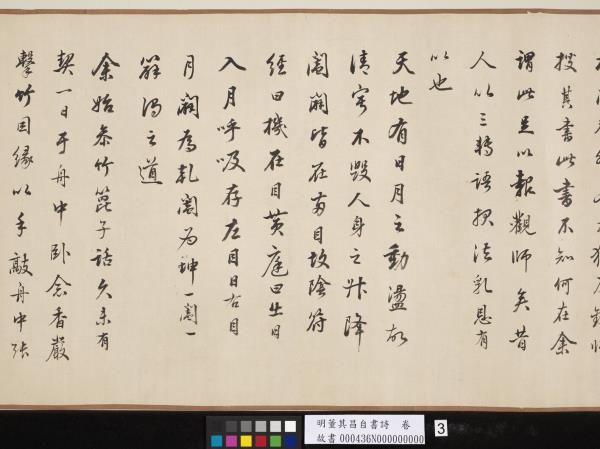 搜其書此書不知何在余
謂此足以報觀師矣昔
人以三轉語報法乳恩有
以也
天地有日月之動盪故
清寧不毀人身之升降
闔闢皆在兩目故陰符
經曰機在目黃庭曰出日
入月呼吸存左目日右目
月闢為乾闔為坤一闔一
之道
余始參竹篦子話久未有
契一日於舟中臥念香嚴
擊竹因緣以手敲舟中張
明董其昌自書詩 卷
故書 000436N000000000
3